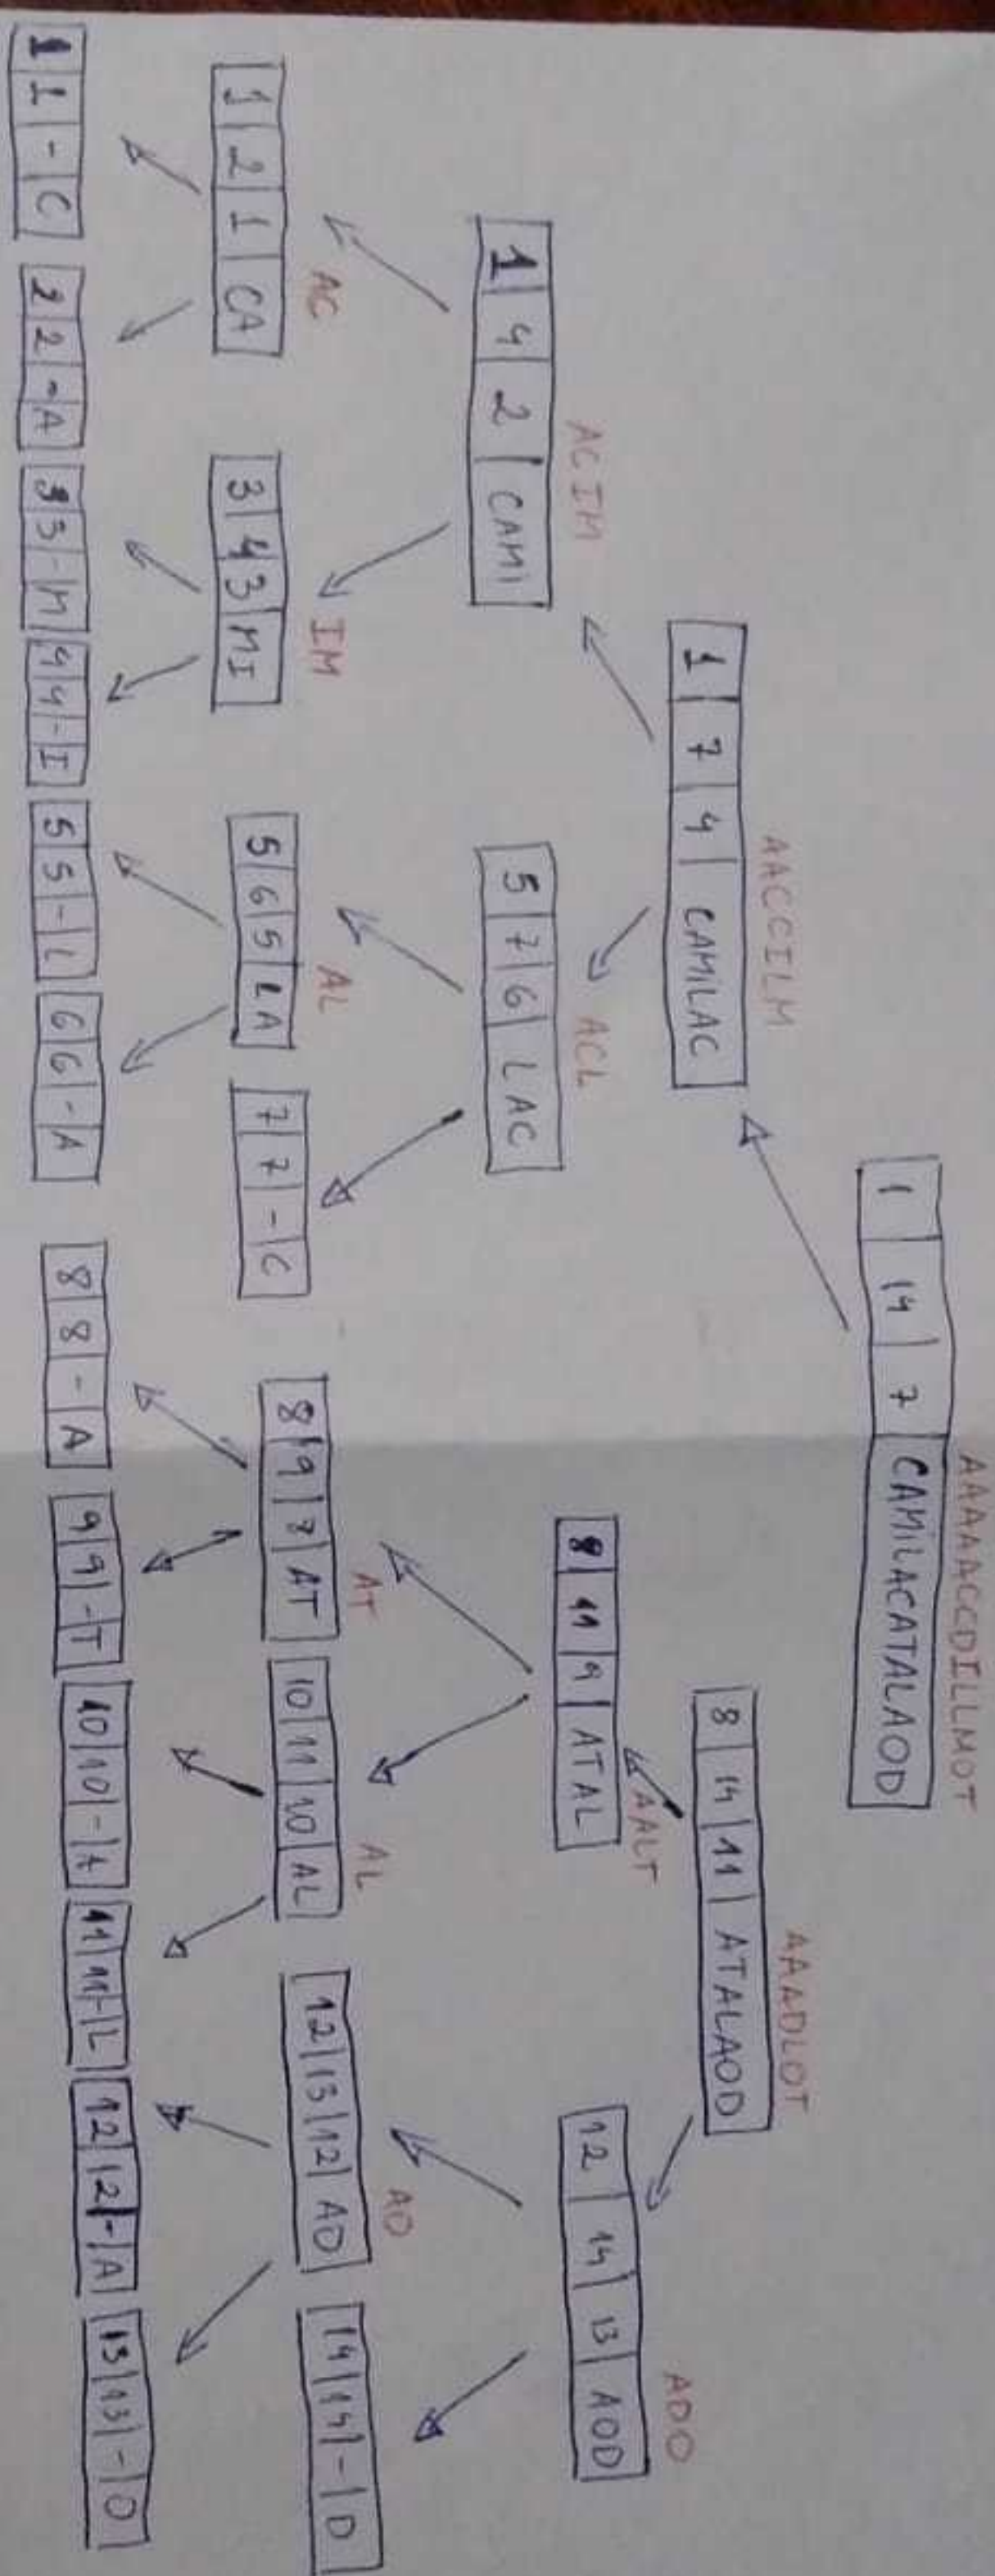 AAAAACCDILLMOT
1 | 14 | 7 | CAMILACATALAOD
AACCILM
1 | 7 | 4 | CAMILAC
AAADLOT
8 | 14 | 11 | ATALAOD
ACIM
1 | 4 | 2 | CAMI
ACL
5 | 7 | 6 | LAC
AALT
8 | 11 | 9 | ATAL
ADO
12 | 14 | 13 | AOD
AC
1 | 2 | 1 | CA
IM
3 | 4 | 3 | MI
AL
5 | 6 | 5 | LA
7 | 7 | - | C
AT
8 | 9 | 8 | AT
AL
10 | 11 | 10 | AL
AO
12 | 13 | 12 | AO
14 | 14 | - | D
1 | 1 | - | C
2 | 2 | - | A
3 | 3 | - | M
4 | 4 | - | I
5 | 5 | - | L
6 | 6 | - | A
8 | 8 | - | A
9 | 9 | - | T
10 | 10 | - | A
11 | 11 | - | L
12 | 12 | - | A
13 | 13 | - | O